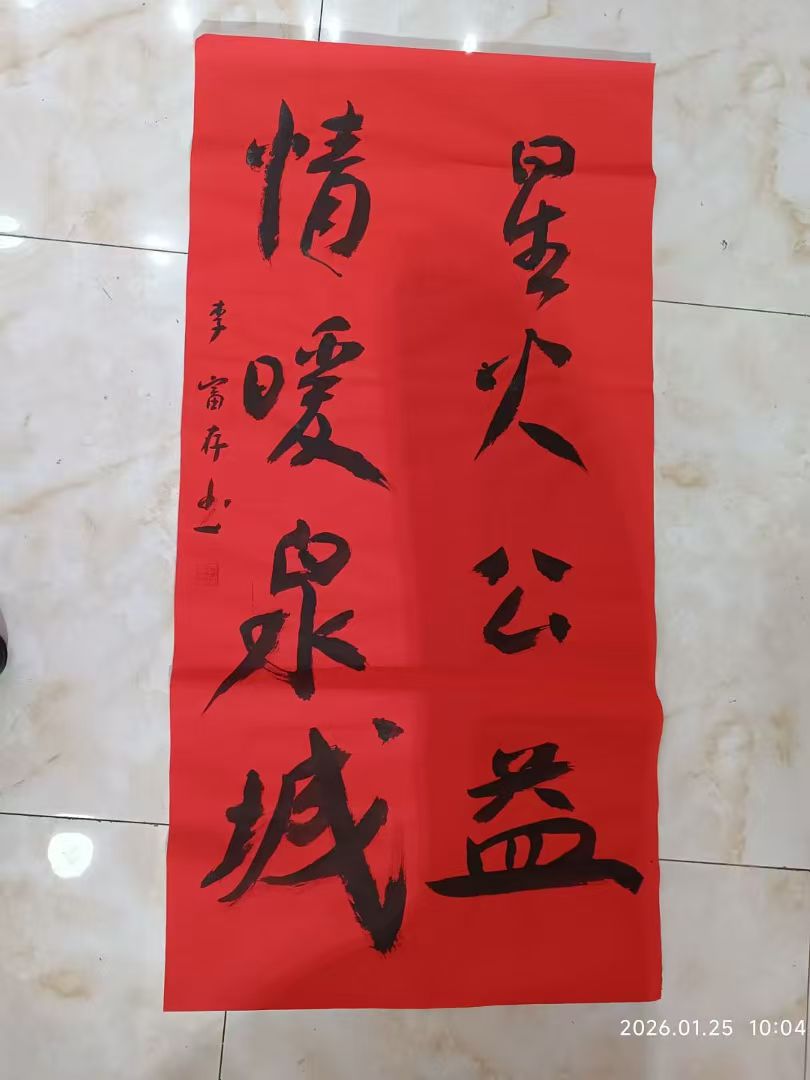 星火公益
情暖泉城
李富存书
2026.01.25 10:04